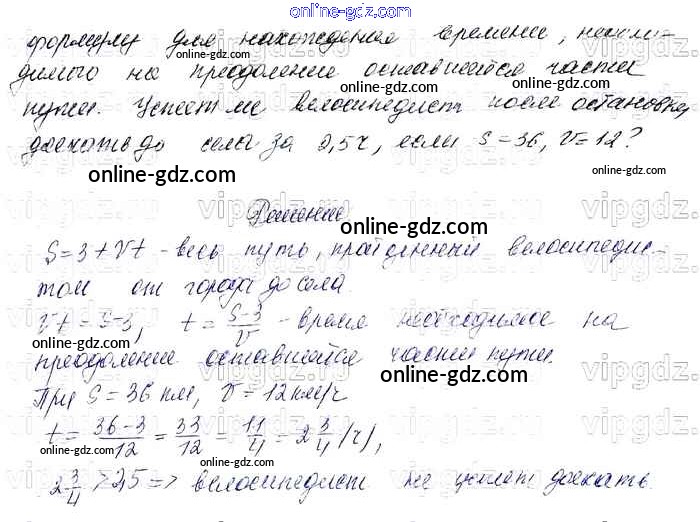 online-gdz.com
формулу для нахождения времени, необхо-
димого на преодоление оставшейся части
online-gdz.com
пути. Успеет ли велосипедист после остановки
доехать до села за 2,5ч, если S=36, V=12?
online-gdz.com
online-gdz.com
Решение
online-gdz.com
S=3+Vt - весь путь, пройденный велосипедис-
том от города до села.
online-gdz.com
Vt=S-3, t=(S-3)/V - время необходимое на
преодоление оставшейся части пути.
online-gdz.com
При S=36км, V=12км/ч
online-gdz.com
t=(36-3)/12=33/12=11/4=2 3/4 (ч),
online-gdz.com
2 3/4 > 2,5 => велосипедист не успеет доехать.
online-gdz.com